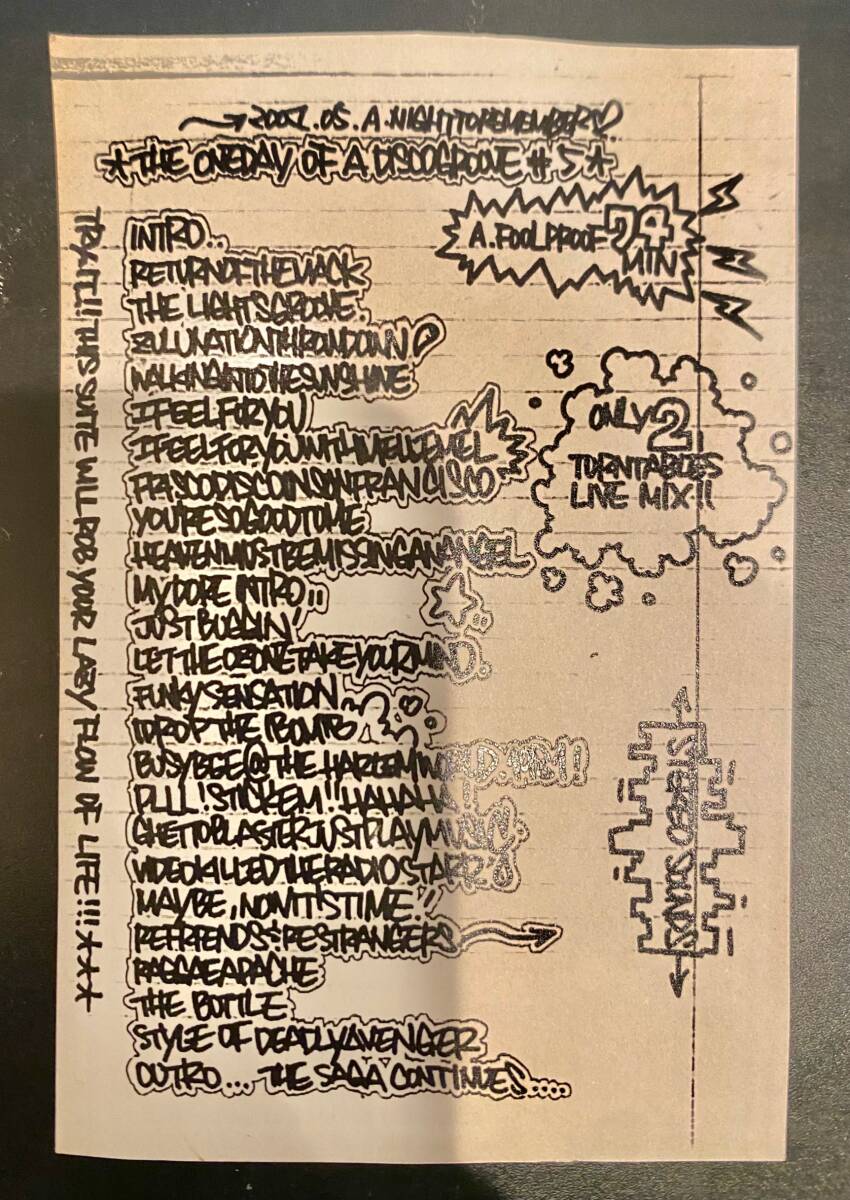 2002.05.A.NIGHTTOREMEMBER
*THE ONEDAY OF A DISCOGROOVE #5*
A.FOOLPROOF 74
MIN
INTRO..
RETURNOFTHEMACK
THE LIGHTSGROOVE.
ZULUNATIONTHROWDOWN
WALKINGINTOTHESUNSHINE
IFEELFORYOU
IFEELFORYOUWITHMELLEMEL
FRISCODISCOINSONFRANCISCO
YOU'RESOGOODTOME
HEAVENMUSTBEMISSINGANANGEL
MY DOPE INTRO..
JUSTBUGGIN'
LETTHEOZONETAKEYOURMIND.
FUNKYSENSATION
IDROPTHEBOMB
BUSYBEE@THEHARLEMWORLD.1981!!
PLLL!STICKEM!!HAHAHA!
GHETTOBLASTERJUSTPLAYMUSIC
VIDEOKILLEDTHERADIOSTARR'S
MAYBE,NOWIT'STIME!!
REFRIENDS&RESTRANGERS
RAGGAEAPACHE
THE BOTTLE
STYLE OF DEADLYAVENGER
OUTRO... THE SAGA CONTINUES....
ONLY 2
TURNTABLES
LIVE MIX!!
STEREO SOUNDS
TRY IT!! THIS SUITE WILL FOR YOUR LAZY FLOW OF LIFE!!!.***